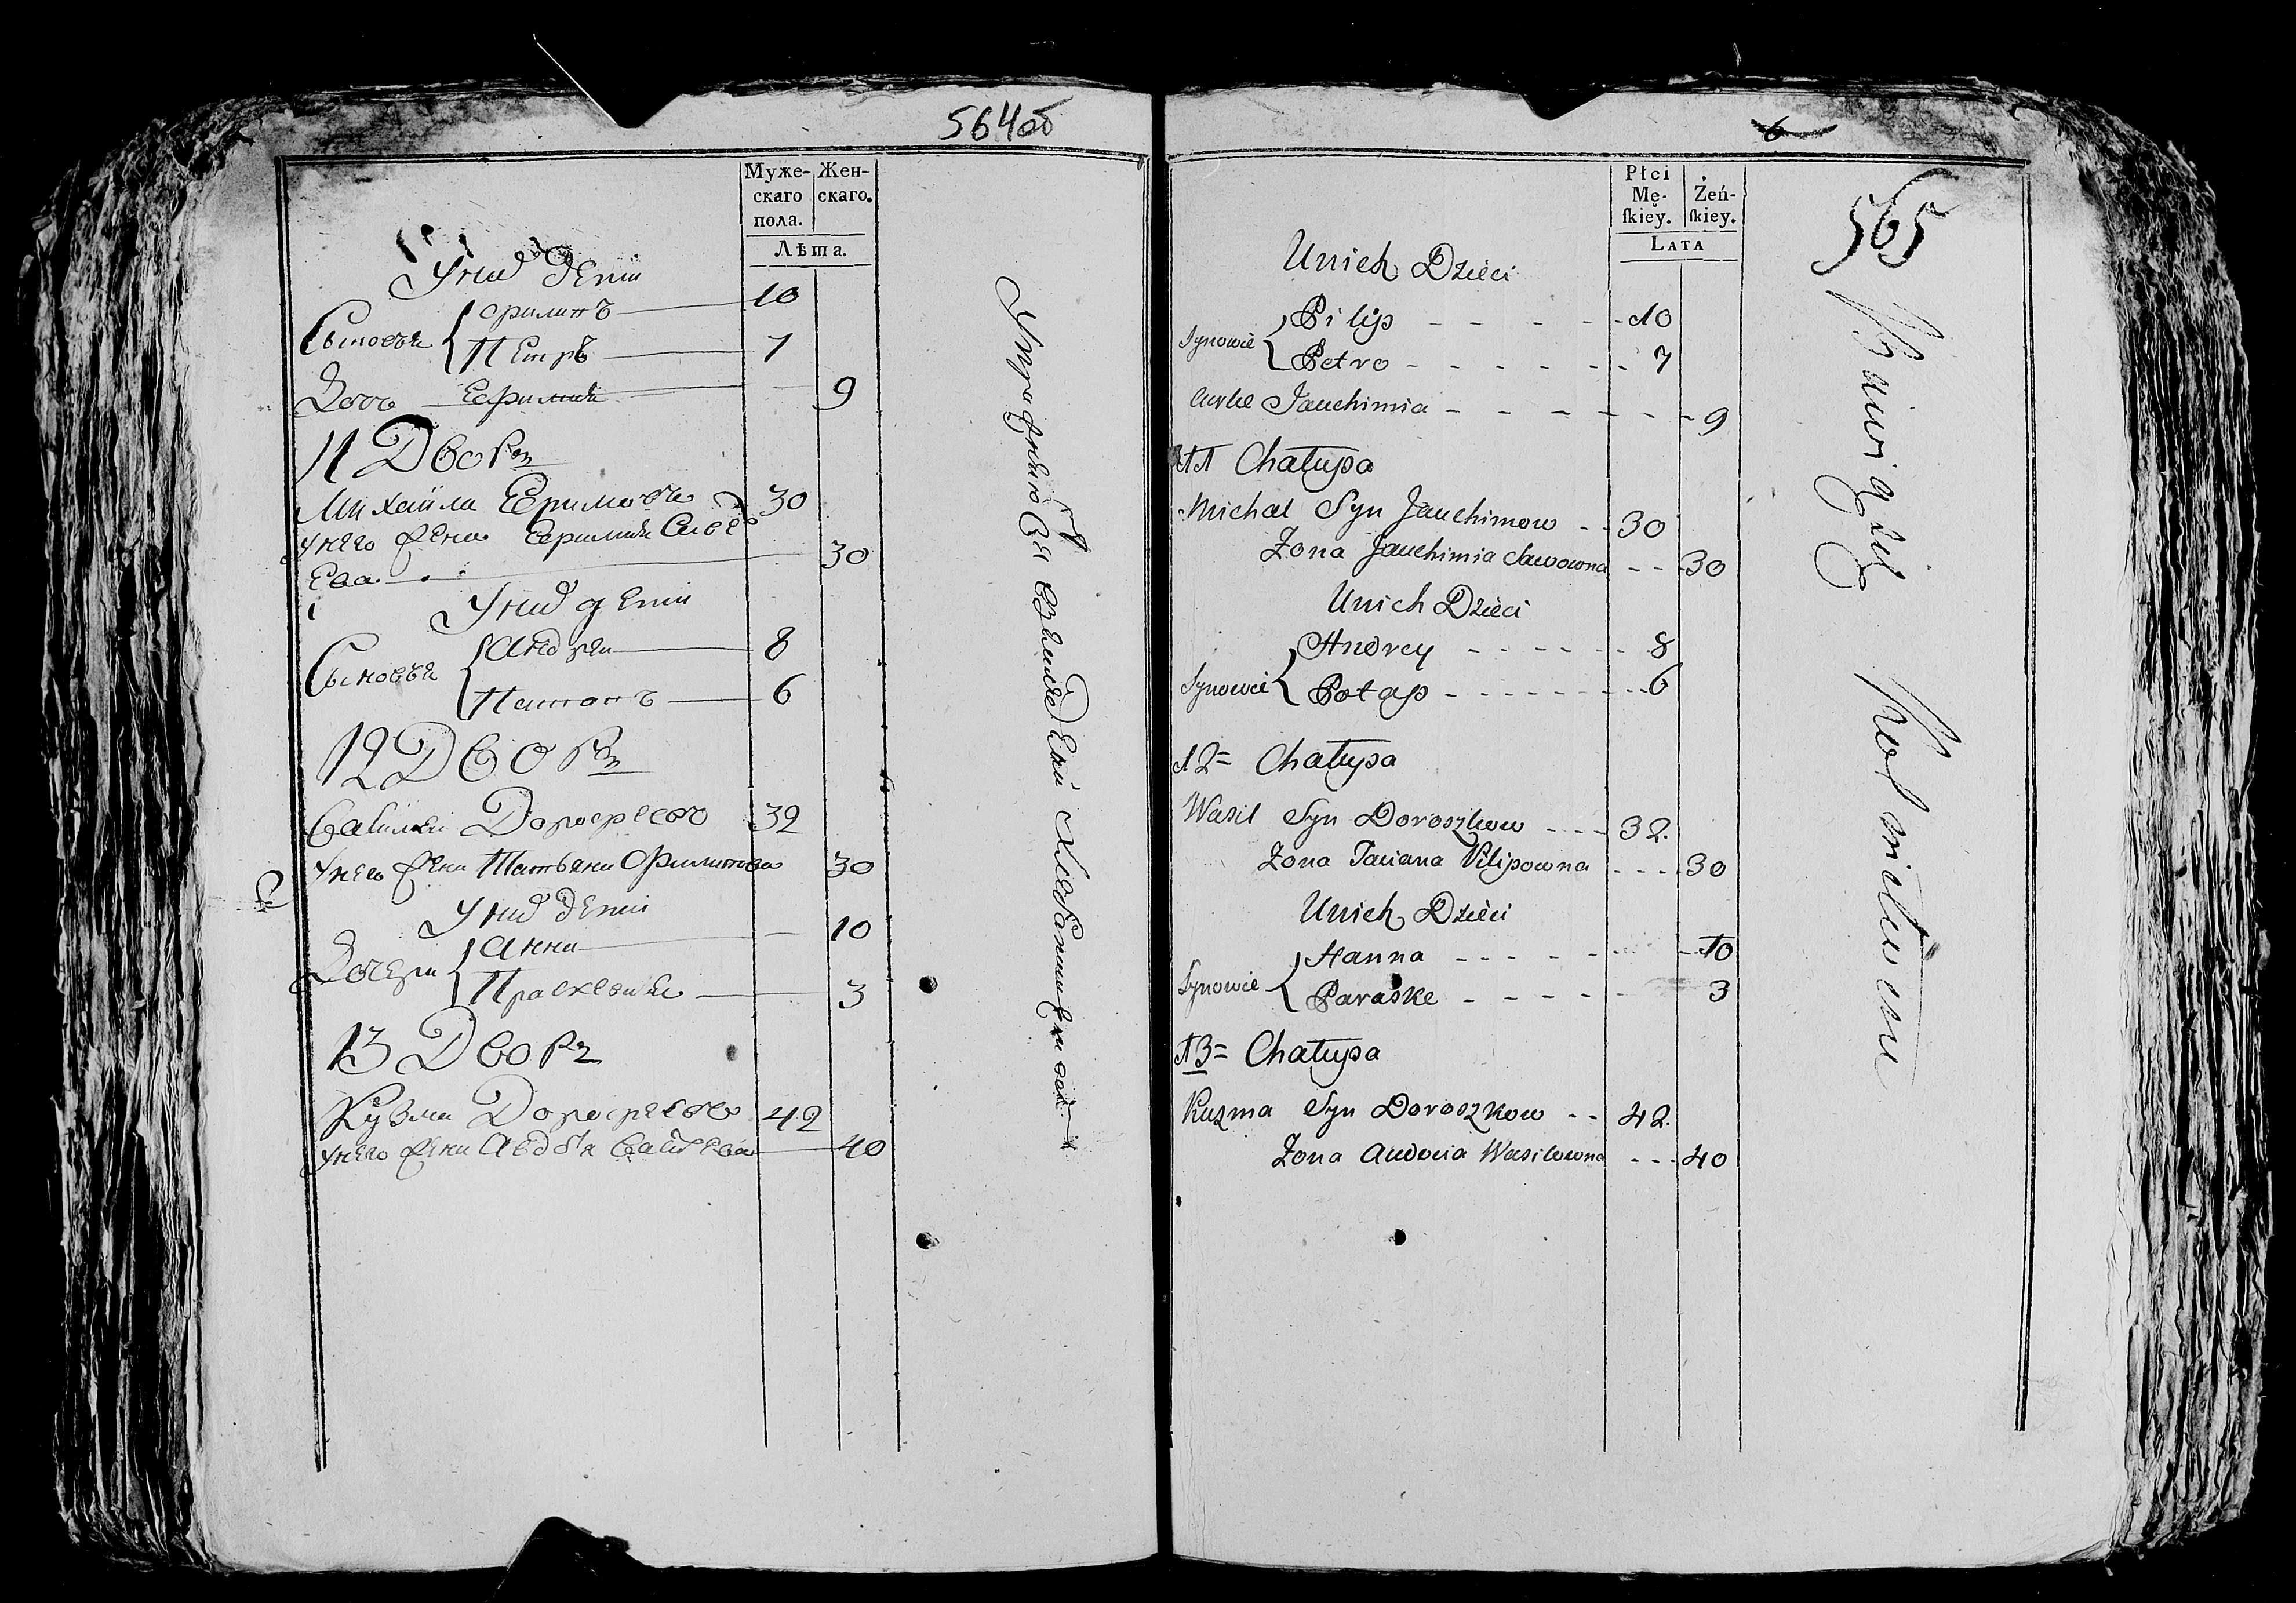 564об
Муже-
скаго
пола.
Жен-
скаго.
Лѣта.
У них Дети
Сыновья { Филипъ 10
Петръ 7
Дочь Ефимия 9
11 Дворъ
Михайла Ефимовъ 30
У него Жена Ефимия Саве
ева 30
У них дети
Сыновья { Андрей 8
Патапъ 6
12 Дворъ
Василей Дорофеевъ 32
У него Жена Татьяна Филипова 30
У них дети
Дочери { Анна 10
Прасковья 3
13 Дворъ
Кузма Дорофеевъ 42
У него Жена Авдотья 40
6
565
Płci
Mę-
ſkiey.
Żeń-
ſkiey.
Lata
Unich Dzieci
Synowie { Pilip - - - - - 10
Petro - - - - - - 7
Jauchimia - - - - - - 9
11 Chałupa
Michał Syn Jauchimow - - 30
Zona Jauchimia Sawowna - - 30
Unich Dzieci
Synowie { Andrey - - - - - - 8
Potap - - - - - - - - 6
12= Chałupa
Wasil Syn Doroszkow - - - 32.
Zona Taciana Filipowna - - - - 30
Unich Dzieci
Synowie { Hanna - - - - - - - 10
Paraske - - - - - 3
13= Chałupa
Kuzma Syn Doroszkow - - 42.
Zona Audocia Wasilowna - - - 40